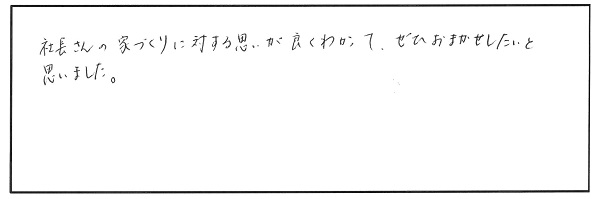 社長さんの家づくりに対する思いが良くわかって、ぜひおまかせしたいと
思いました。